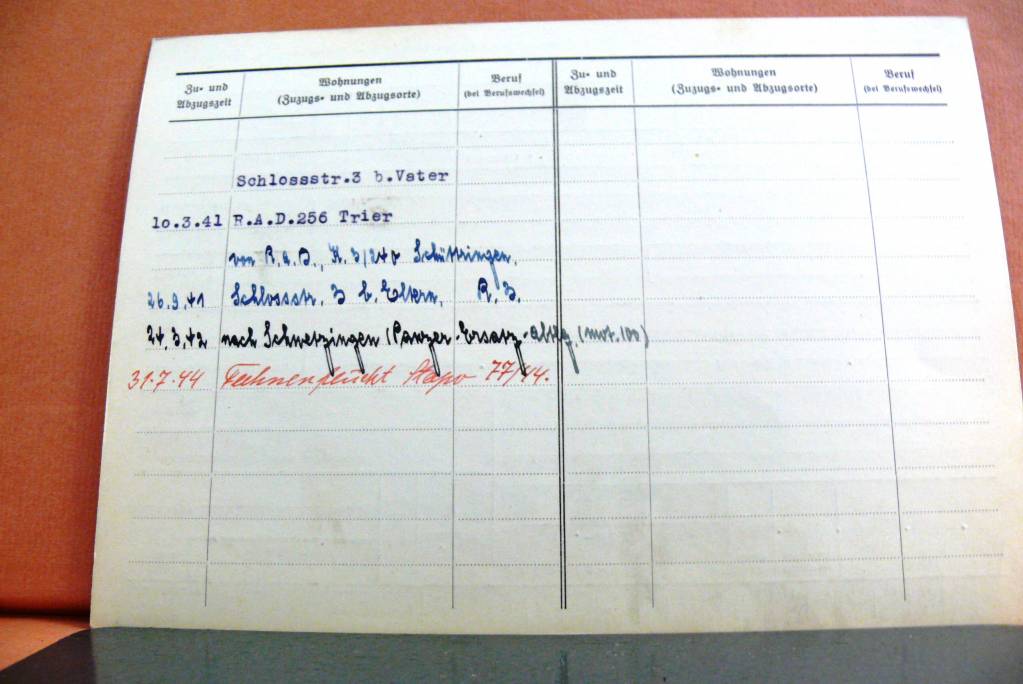 Zu- und
Abzugszeit
Wohnungen
(Zuzugs- und Abzugsorte)
Beruf
(bei Berufswechsel)
Zu- und
Abzugszeit
Wohnungen
(Zuzugs- und Abzugsorte)
Beruf
(bei Berufswechsel)
Schlossstr.3 b.Vater
lo.3.41 R.A.D.256 Trier
von R.A.D., K. 3/240 Schüttringen.
26.9.41 Schlossstr. 3 b. Eltern, R. B.
24.3.42 nach Schwetzingen (Panzer-Ersatz-Abtlg. (mot.100)
31.7.44 Fahnenflucht Stapo 77/44.